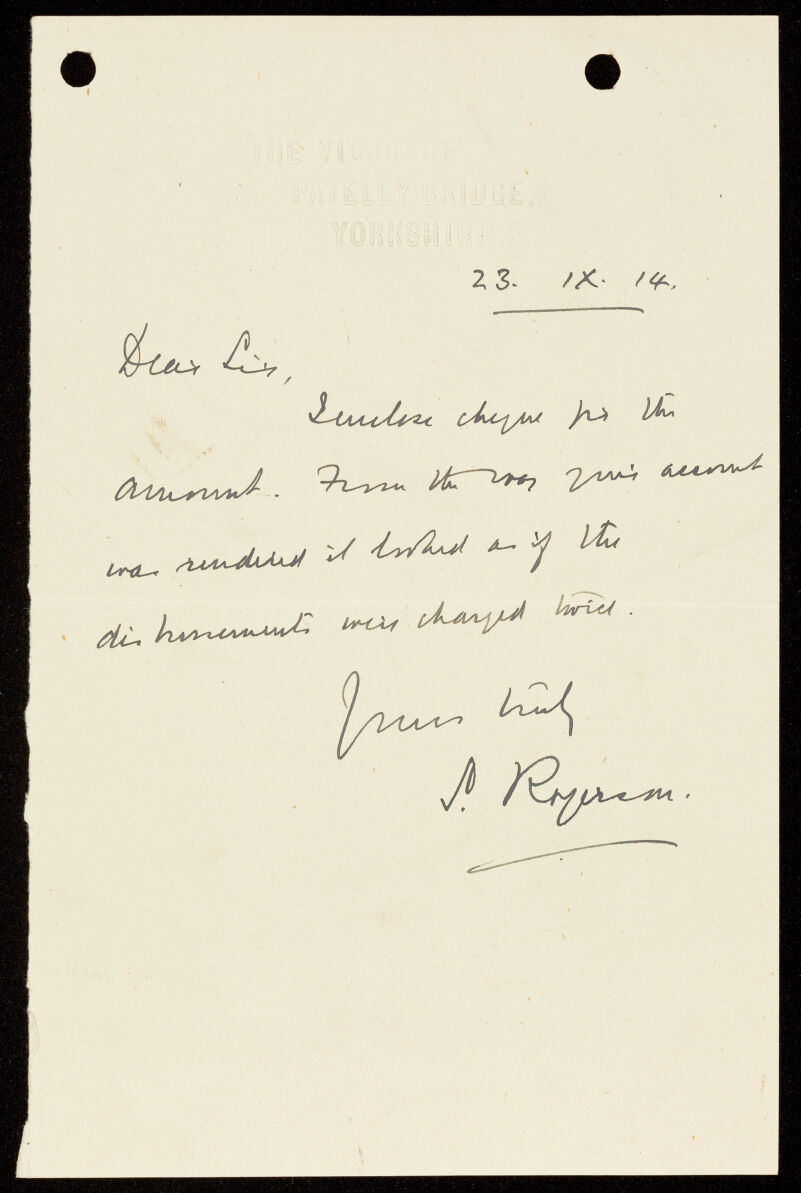 THE VICARAGE.
PATELEY BRIDGE.
YORKSHIRE.
23. IX. 14.
Dear Sir,
I enclose cheque for the
amount. From the way your account
was rendered it looked as if the
disbursements were charged twice.
Yours truly
S. Rogerson.